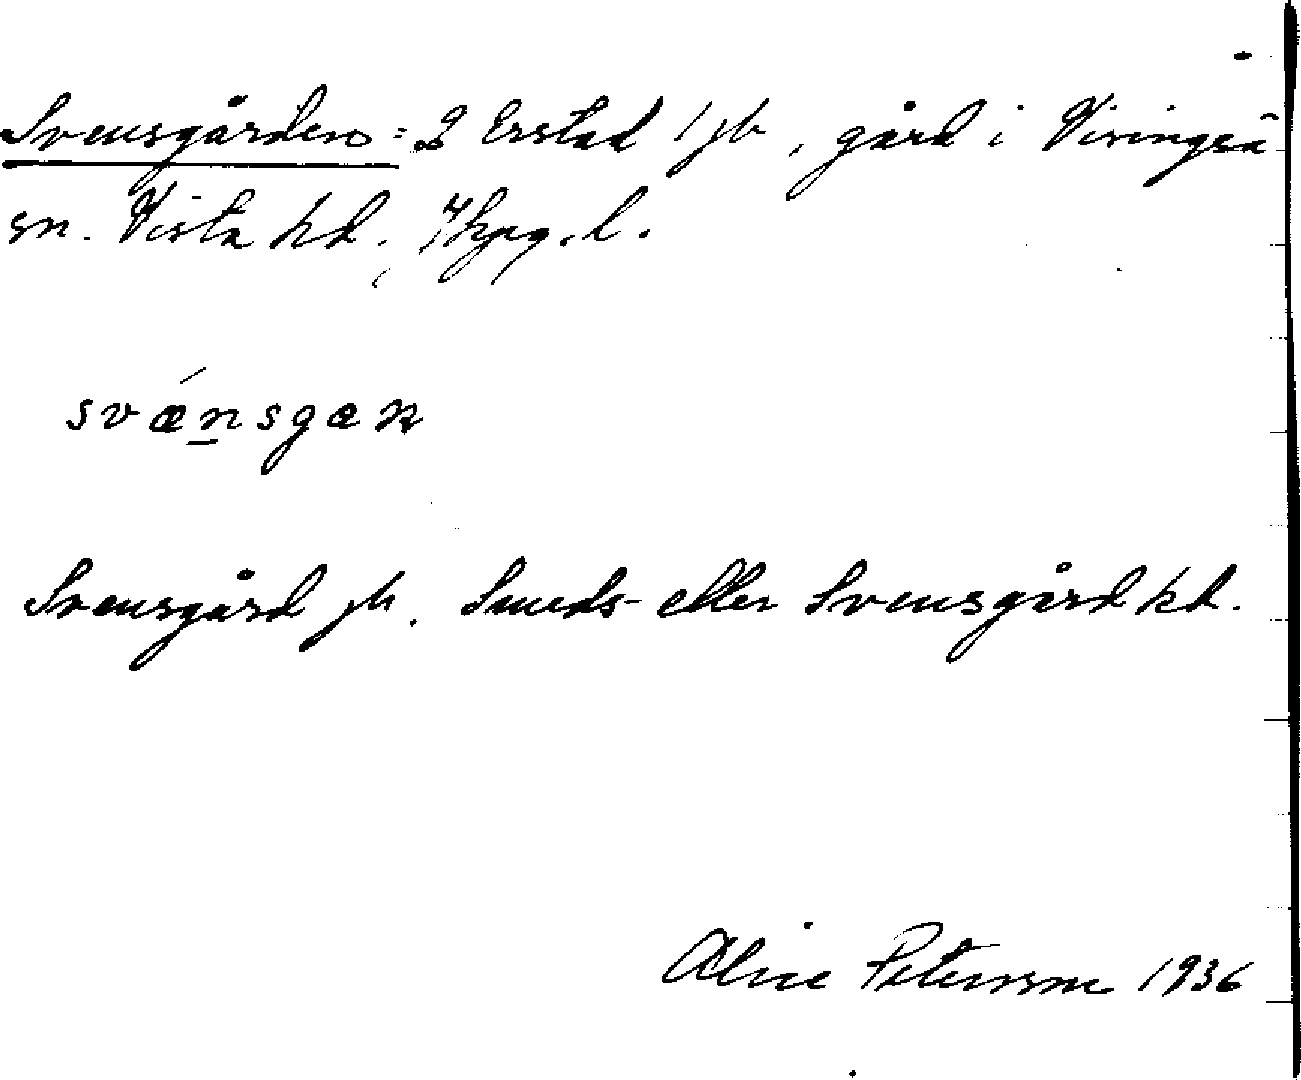 Svensgården = 2 Erstad 1 jb, gård i Visingsö
sn. Vista hd, Jkpg. l.
svǽn̲sgæn
Svensgård jb. Smeds- eller Svensgård hd.
Alice Petersson 1936